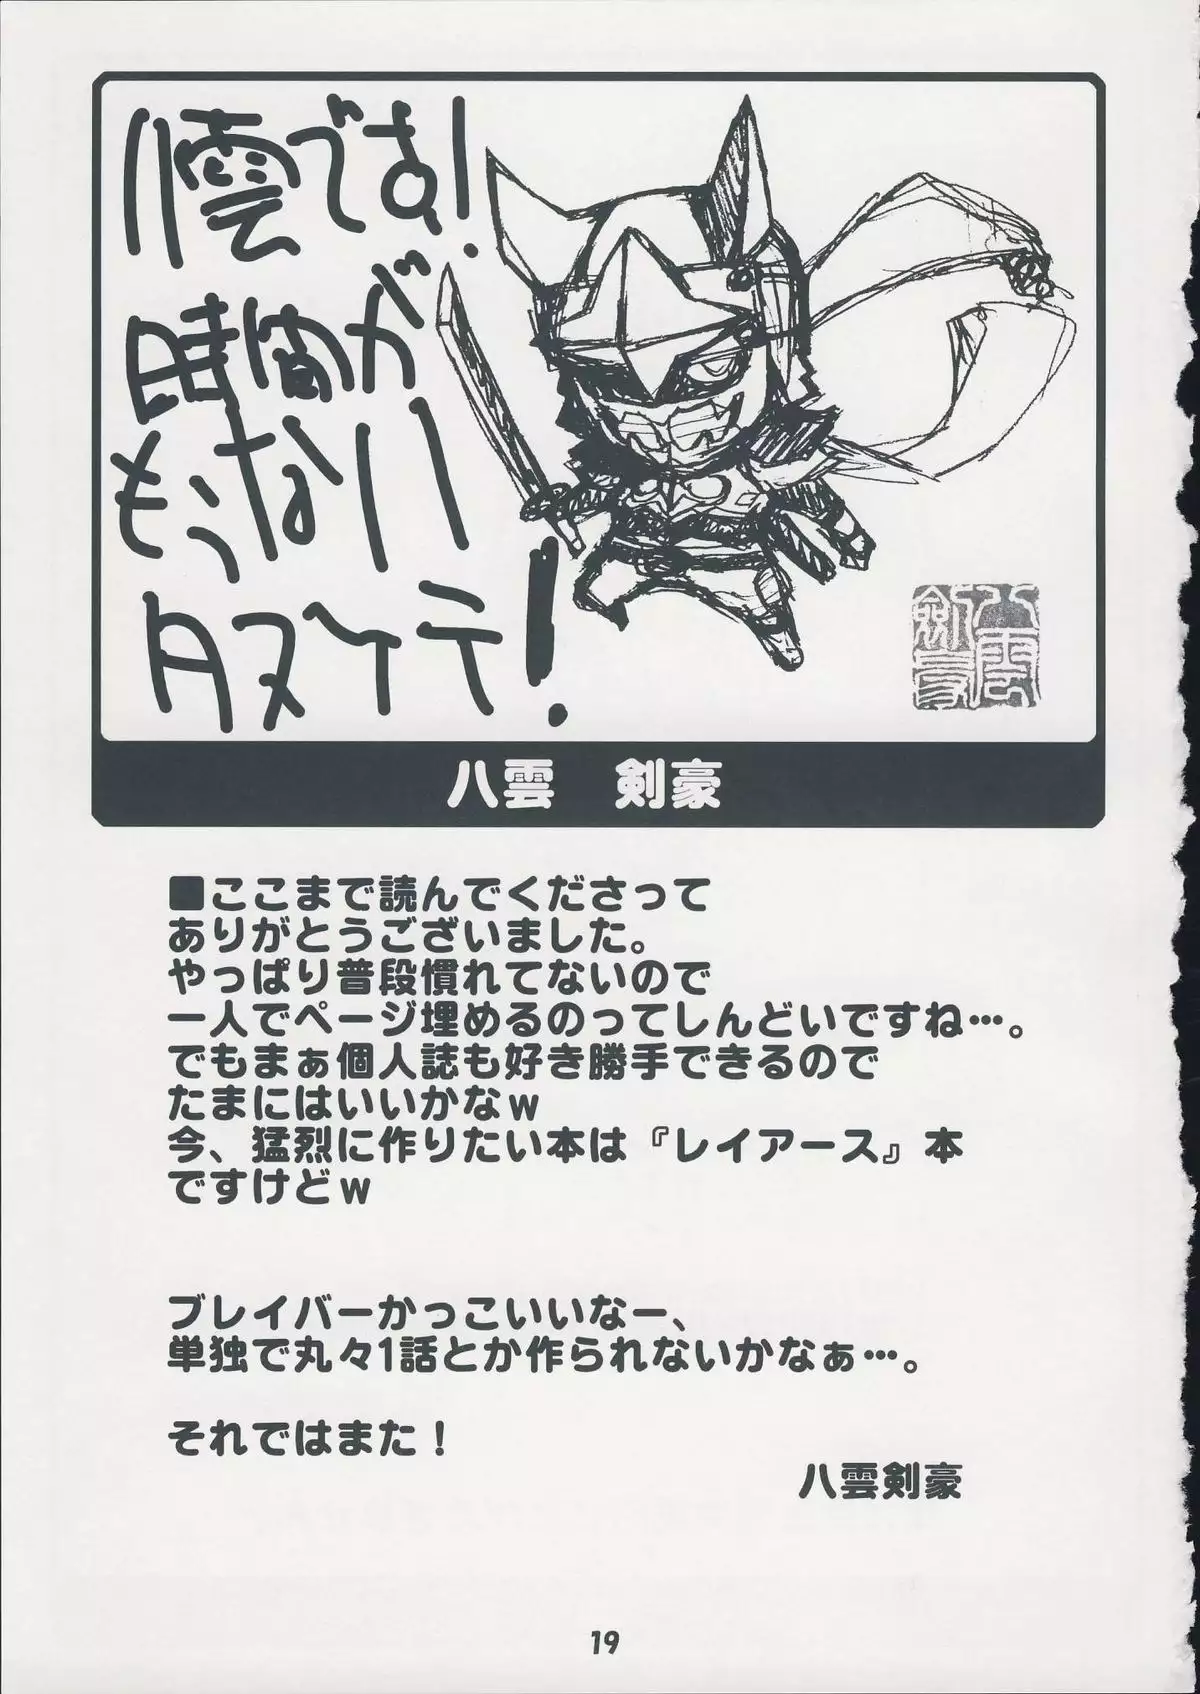 八雲です!
時間が
もうない
タスケテ!
八雲剣豪
八雲 剣豪
■ここまで読んでくださって
ありがとうございました。
やっぱり普段慣れてないので
一人でページ埋めるのってしんどいですね…。
でもまぁ個人誌も好き勝手できるので
たまにはいいかなｗ
今、猛烈に作りたい本は『レイアース』本
ですけどｗ
ブレイバーかっこいいなー、
単独で丸々1話とか作られないかなぁ…。
それではまた！
八雲剣豪
19